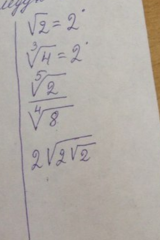 √2 = 2
∛4 = 2
⁵√2 / ⁴√8
2√(2√2)